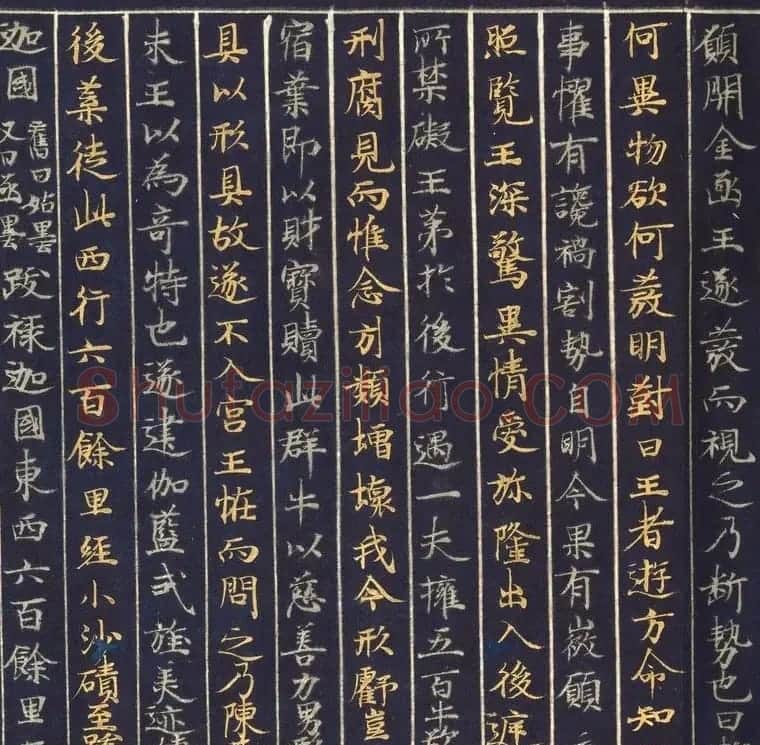 願開金函王遂發而視之乃断勢也曰
何異物欲何發明對曰王者遊方命知
事懼有讒禍割勢自明今果有徵願
照覽王深驚異情愛弥隆出入後
所禁礙王弟於後行遇一夫擁五百牛欲
刑腐見而惟念引類
我今形虧豈
宿業即以財寳贖此群牛以慈善力男
具以形具故遂不入宫王恠而問之乃陳
末王以為竒特也遂建伽藍式旌美迹
後葉従此西行六百餘里経小沙磧至跋
迦國舊曰姑墨又曰亟墨跋禄迦國東西六百餘里
Shufaziliao.COM